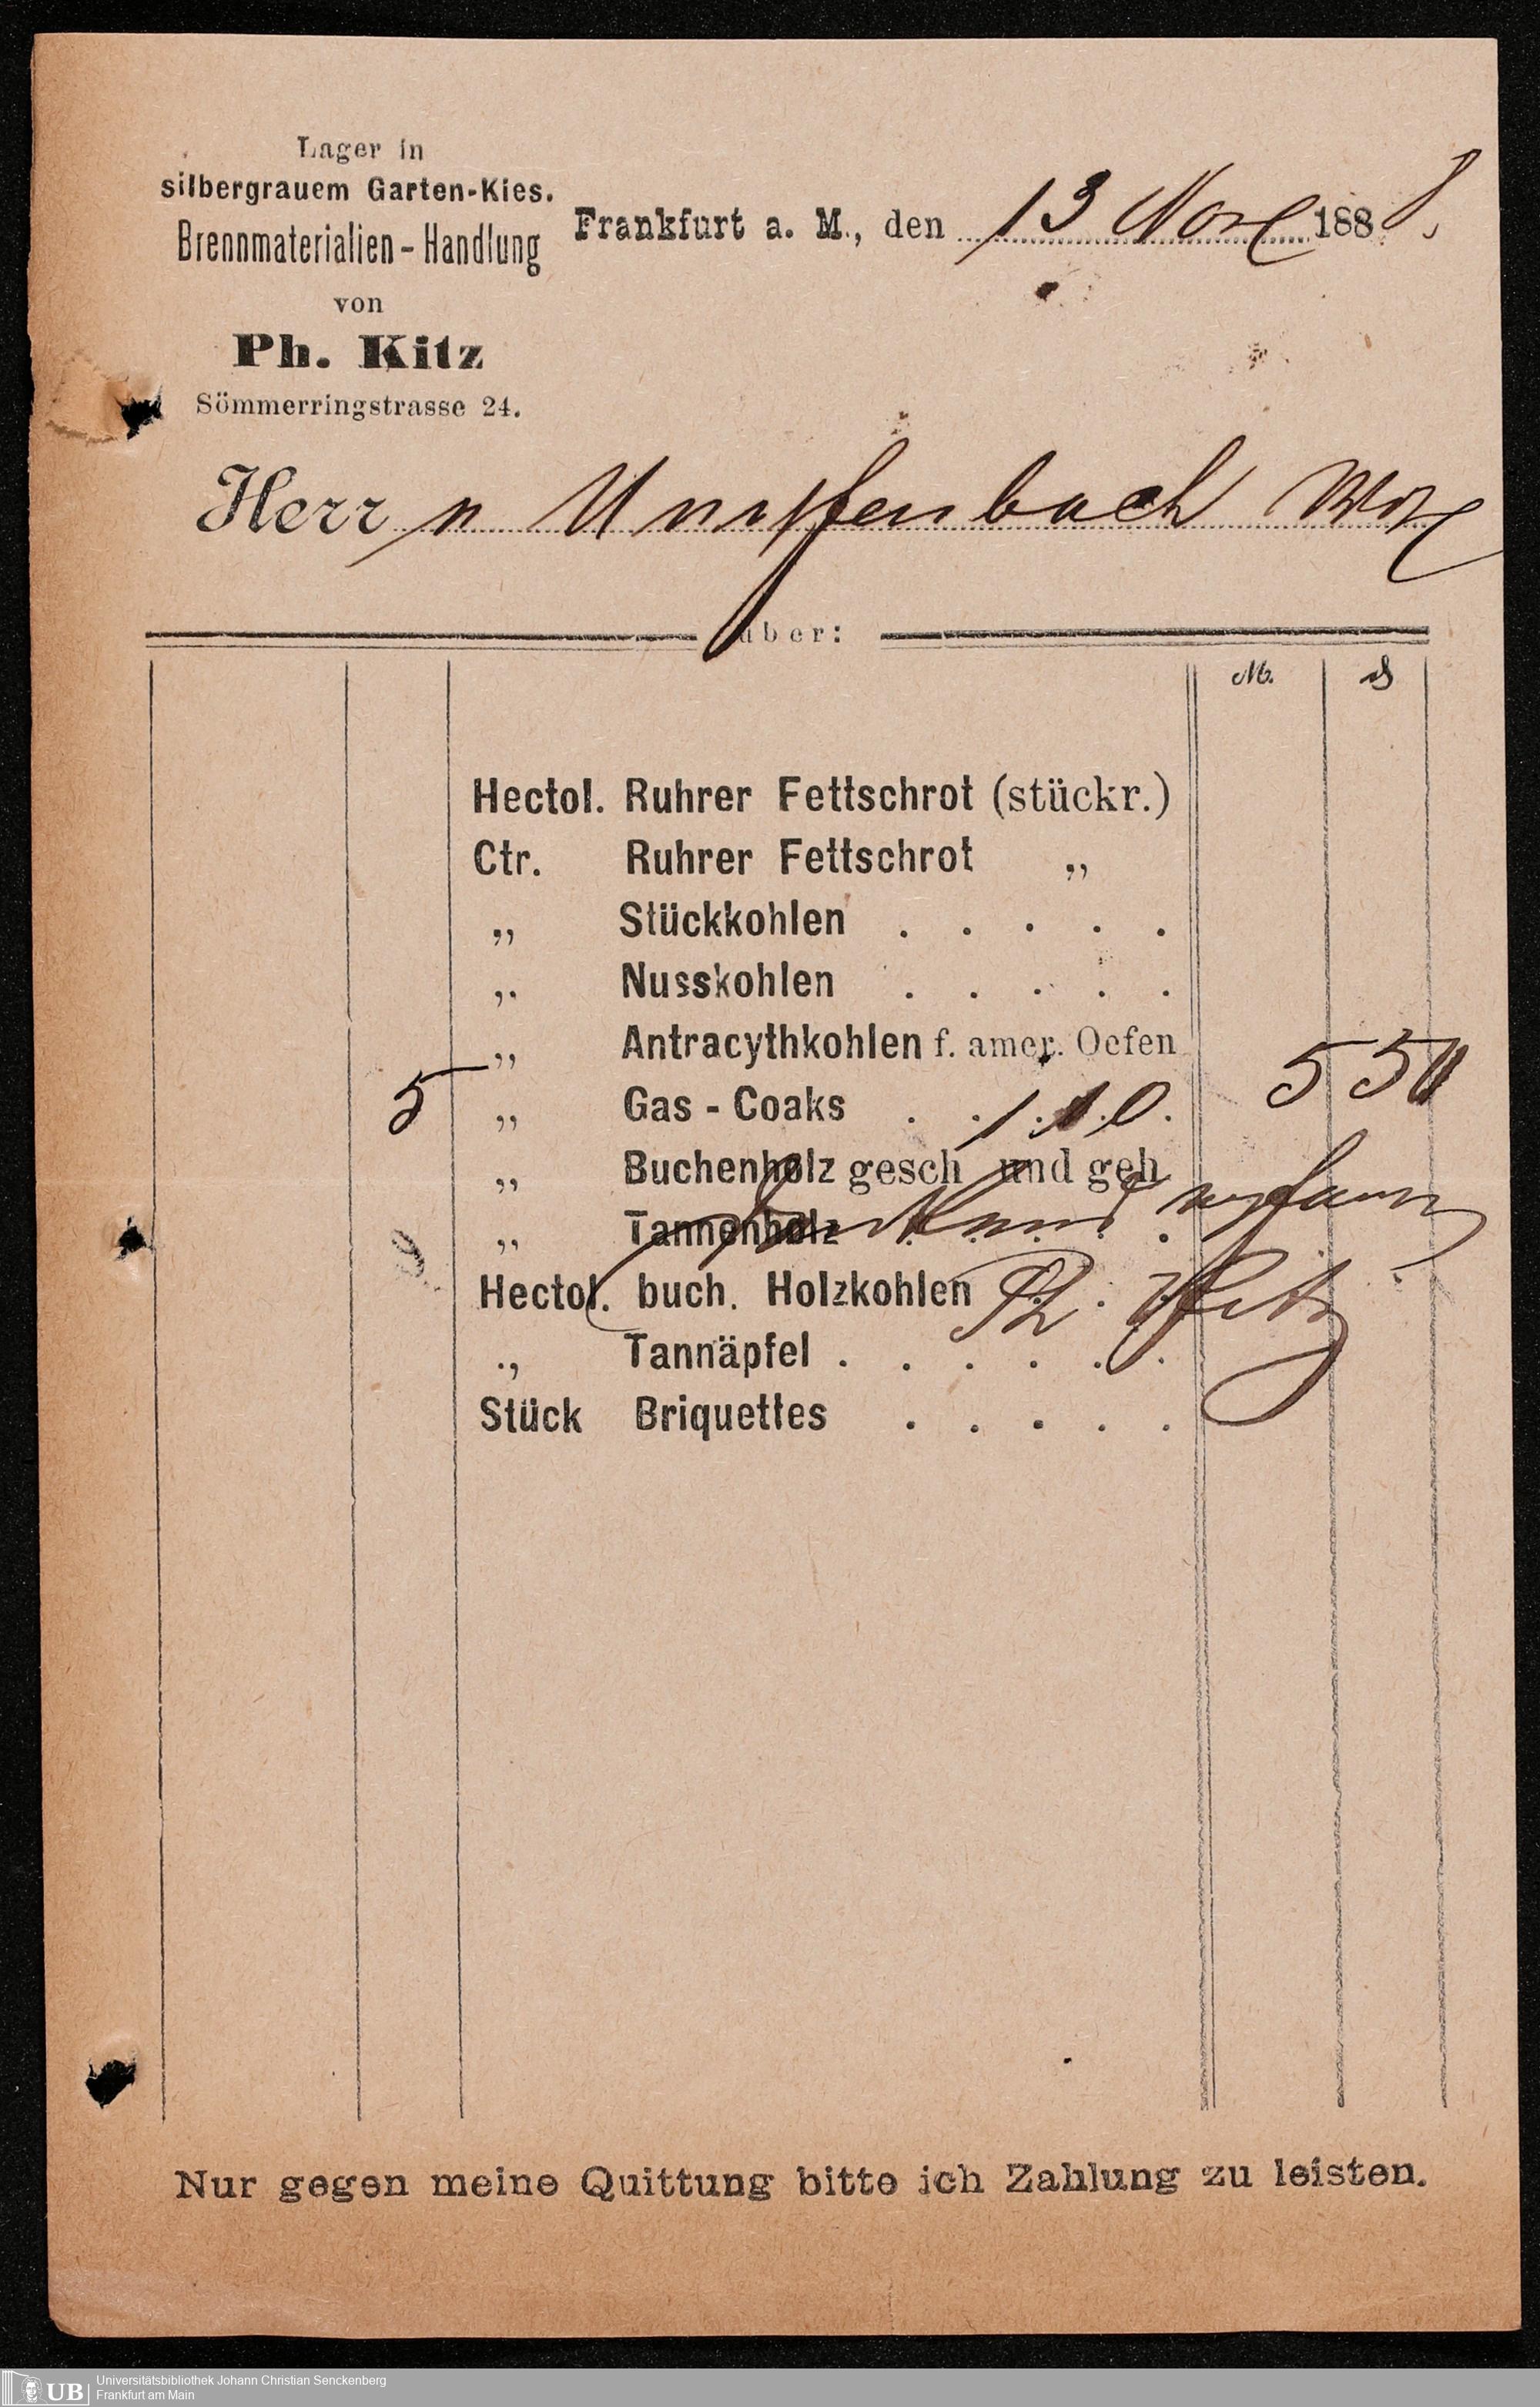 Lager in
silbergrauem Garten-Kies.
Brennmaterialien-Handlung
von
Ph. Kitz
Sömmerringstrasse 24.
Frankfurt a. M., den 13 Nov 1888.
Herrn Umpfenbach
über:
M. ₰
Hectol. Ruhrer Fettschrot (stückr.)
Ctr. Ruhrer Fettschrot „
„ Stückkohlen . . . . .
„ Nusskohlen . . . . .
„ Antracythkohlen f. amer. Oefen
5 „ Gas-Coaks . . 1.10. 5 50
„ Buchenholz gesch und geh
„ Tannenholz
dankend empfangen
Hectol. buch. Holzkohlen
Ph. Kitz
„ Tannäpfel . . . . . .
Stück Briquettes . . . . .
Nur gegen meine Quittung bitte ich Zahlung zu leisten.
UB
Universitätsbibliothek Johann Christian Senckenberg
Frankfurt am Main